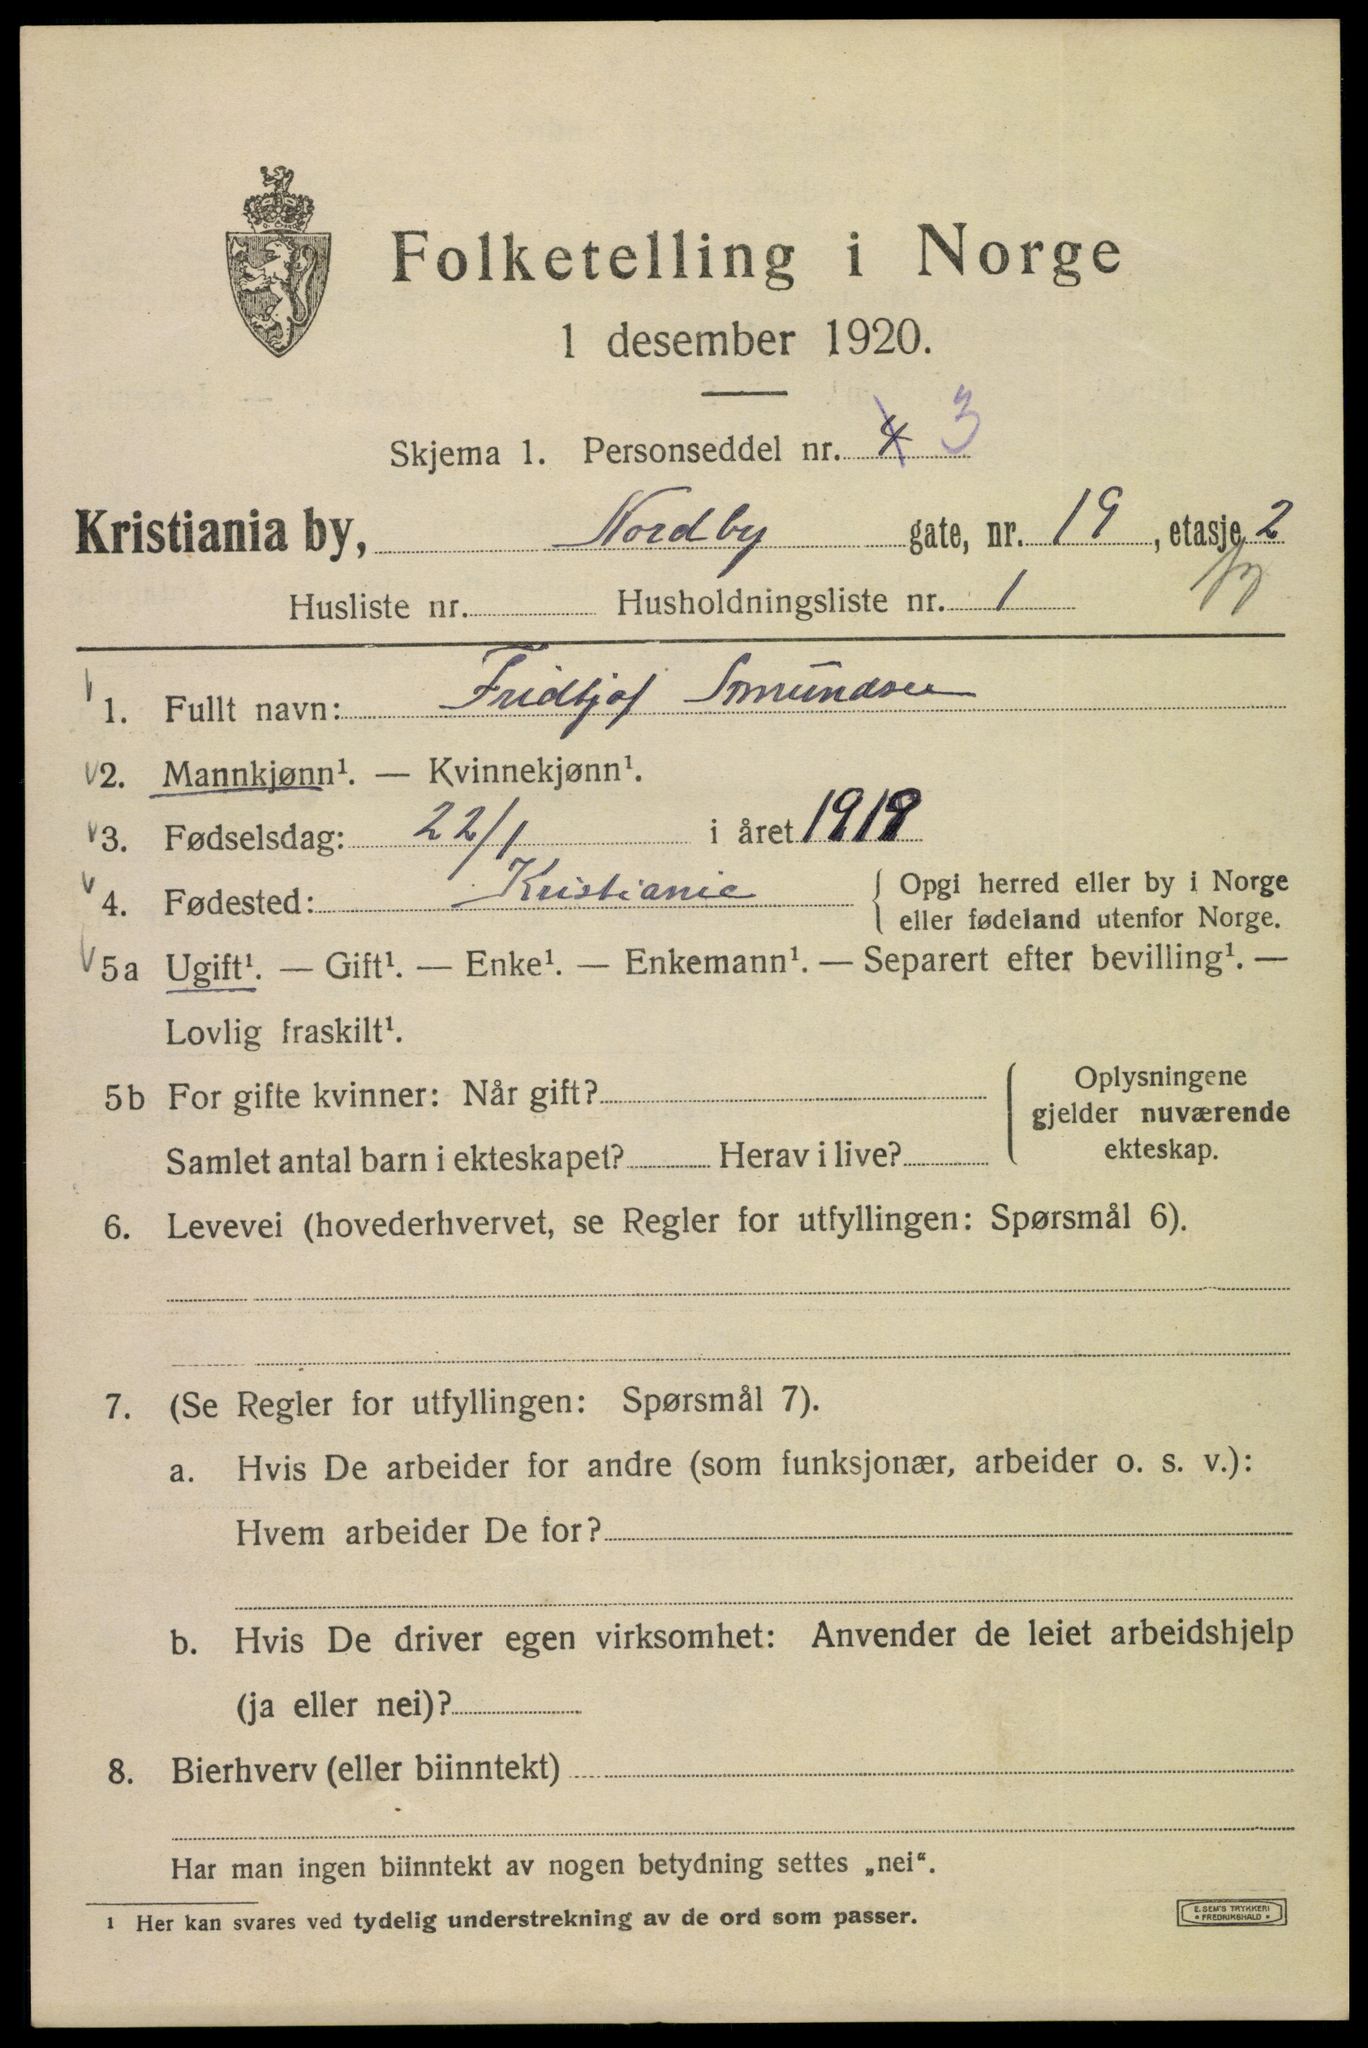 Folketelling i Norge
1 desember 1920.
Skjema 1. Personseddel nr. 4 3
Kristiania by, Nordby gate, nr. 19, etasje 2
Husliste nr. Husholdningsliste nr. 1
1. Fullt navn: Fridtjof
2. Mannkjønn¹. — Kvinnekjønn¹.
3. Fødselsdag: 22/1 i året 1919
4. Fødested: Kristiania { Opgi herred eller by i Norge
eller fødeland utenfor Norge.
5a Ugift¹. — Gift¹. — Enke¹. — Enkemann¹. — Separert efter bevilling¹. —
Lovlig fraskilt¹.
5b For gifte kvinner: Når gift?
Samlet antal barn i ekteskapet? Herav i live?
Oplysningene
gjelder nuværende
ekteskap.
6. Levevei (hovederhvervet, se Regler for utfyllingen: Spørsmål 6).
7. (Se Regler for utfyllingen: Spørsmål 7).
a. Hvis De arbeider for andre (som funksjonær, arbeider o. s. v.):
Hvem arbeider De for?
b. Hvis De driver egen virksomhet: Anvender de leiet arbeidshjelp
(ja eller nei)?
8. Bierhverv (eller biinntekt)
Har man ingen biinntekt av nogen betydning settes „nei“.
¹ Her kan svares ved tydelig understrekning av de ord som passer.
E. SEM'S TRYKKERI
• FREDRIKSHALD •